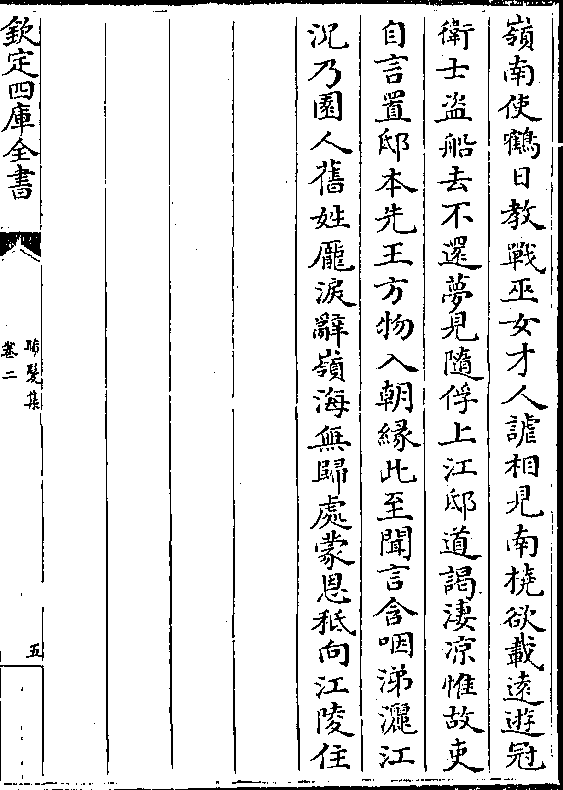 嶺南使鶴日教戰巫女才人謔相見南橈欲載逺逰冠
衛士盗船去不還夢見隨俘上江邸道謁淒凉惟故吏
自言置邸本先王方物入朝縁此至聞言含咽涕灑江
況乃園人舊姓龎淚辭嶺海無歸處蒙恩秪向江陵住
欽定四庫全書
晞髪集
卷二
五